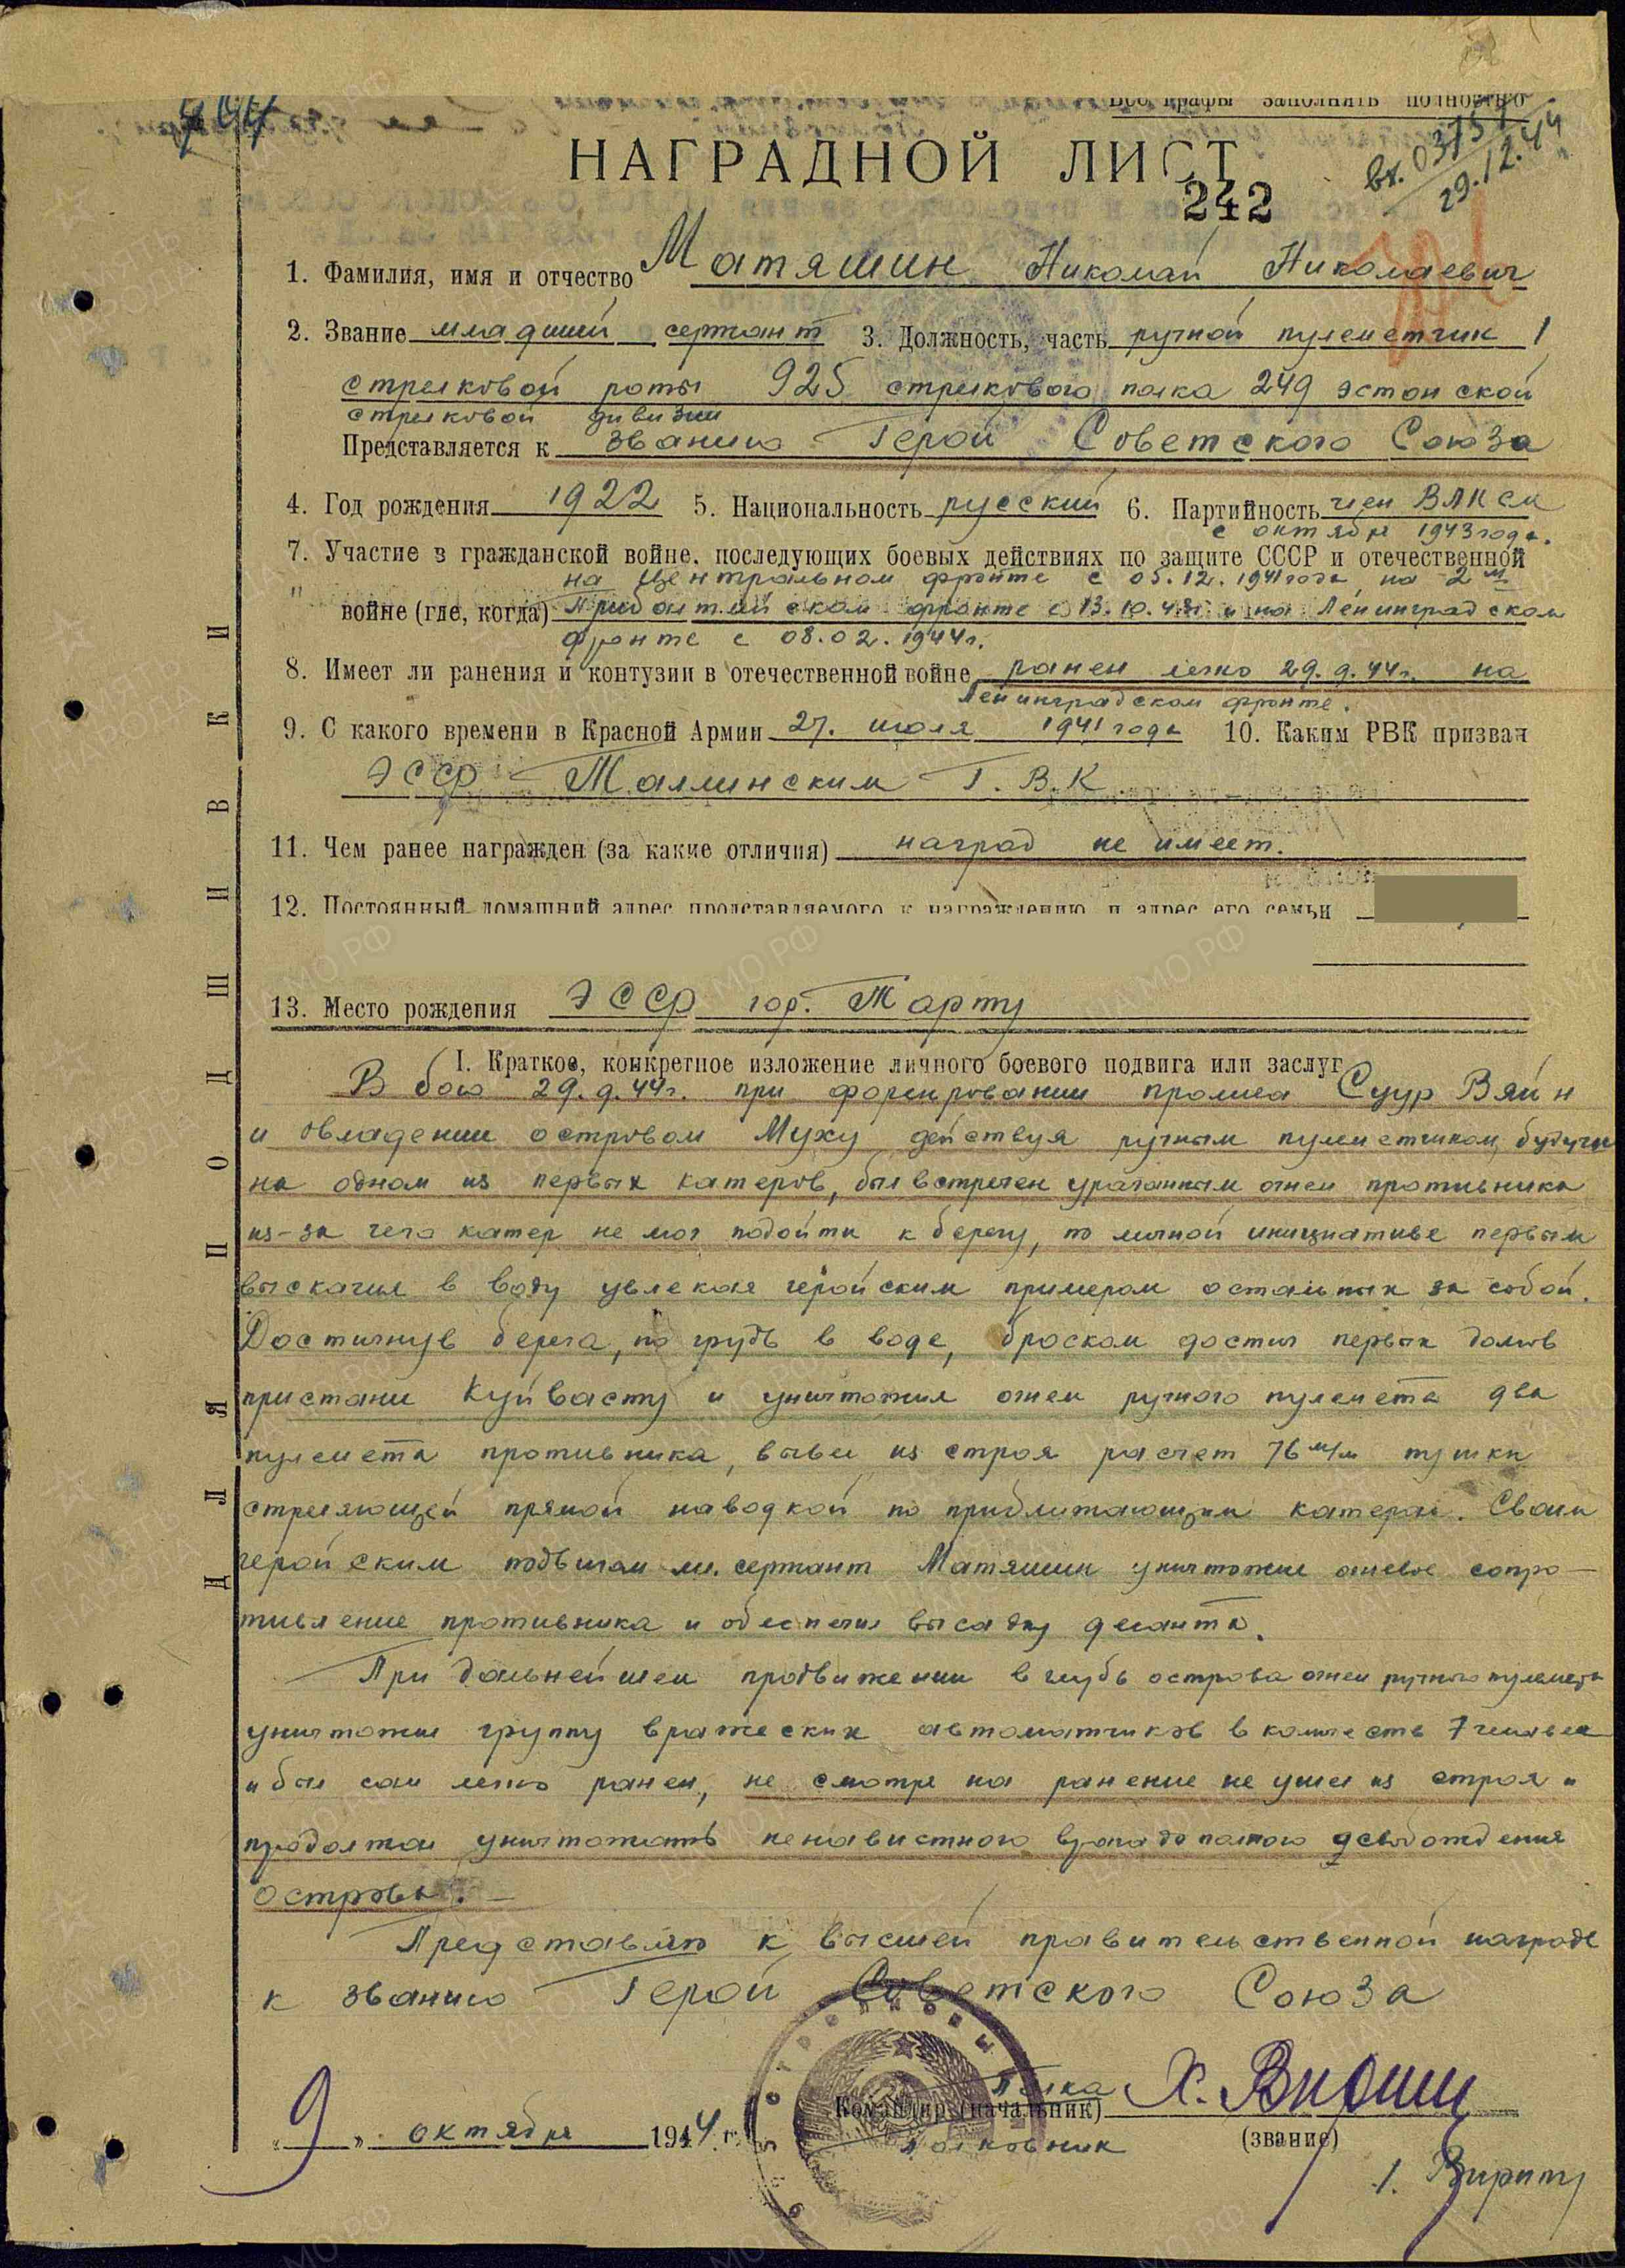 Все графы заполнить полностью
НАГРАДНОЙ ЛИСТ
242
вх. 0375
29.12.44
1. Фамилия, имя и отчество Матяшин Николай Николаевич
2. Звание младший сержант 3. Должность, часть ручной пулеметчик 1
стрелковой роты 925 стрелкового полка 249 эстонской
стрелковой дивизии
Представляется к званию Герой Советского Союза
4. Год рождения 1922 5. Национальность русский 6. Партийность член ВЛКСМ
с октября 1943 года.
7. Участие в гражданской войне, последующих боевых действиях по защите СССР и отечественной
на Центральном фронте с 05.12.1941 года на 2м
войне (где, когда) Прибалтийском фронте с 13.10.43г и на Ленинградском
фронте с 08.02.1944г.
8. Имеет ли ранения и контузии в отечественной войне ранен легко 29.9.44г. на
Ленинградском фронте.
9. С какого времени в Красной Армии 27. июля 1941 года 10. Каким РВК призван
ЭССР Таллинским Г.В.К
11. Чем ранее награжден (за какие отличия) наград не имеет.
12. Постоянный домашний адрес представляемого к награждению и адрес его семьи
13. Место рождения ЭССР гор. Тарту
I. Краткое, конкретное изложение личного боевого подвига или заслуг
В бою 29.9.44г. при форсировании пролива Суур Вяйн
и овладении островом Муху действуя ручным пулеметчиком, будучи
на одном из первых катеров, был встречен ураганным огнем противника
из-за чего катер не мог подойти к берегу, по личной инициативе первым
выскочил в воду увлекая геройским примером остальных за собой.
Достигнув берега, по грудь в воде, броском достиг первых домов
пристани Куйвасту и уничтожил огнем ручного пулемета два
пулемета противника, вывел из строя расчет 76 м/м пушки
стреляющей прямой наводкой по приближающим катерам. Своим
геройским подвигом мл. сержант Матяшин уничтожил огневое сопро-
тивление противника и обеспечил высадку десанта.
При дальнейшем продвижении в глубь острова огнем ручного пулемета
уничтожил группу вражеских автоматчиков в количеств 7 человек
и был сам легко ранен, не смотря на ранение не ушел из строя и
продолжал уничтожать ненавистного врага до полного освобождения
острова.
Представляю к высшей правительственной награде
к званию Герой Советского Союза
полка
Командир (начальник)
полковник
(звание)
„9“ октября 1944 г.
ДЛЯ ПОДШИВКИ